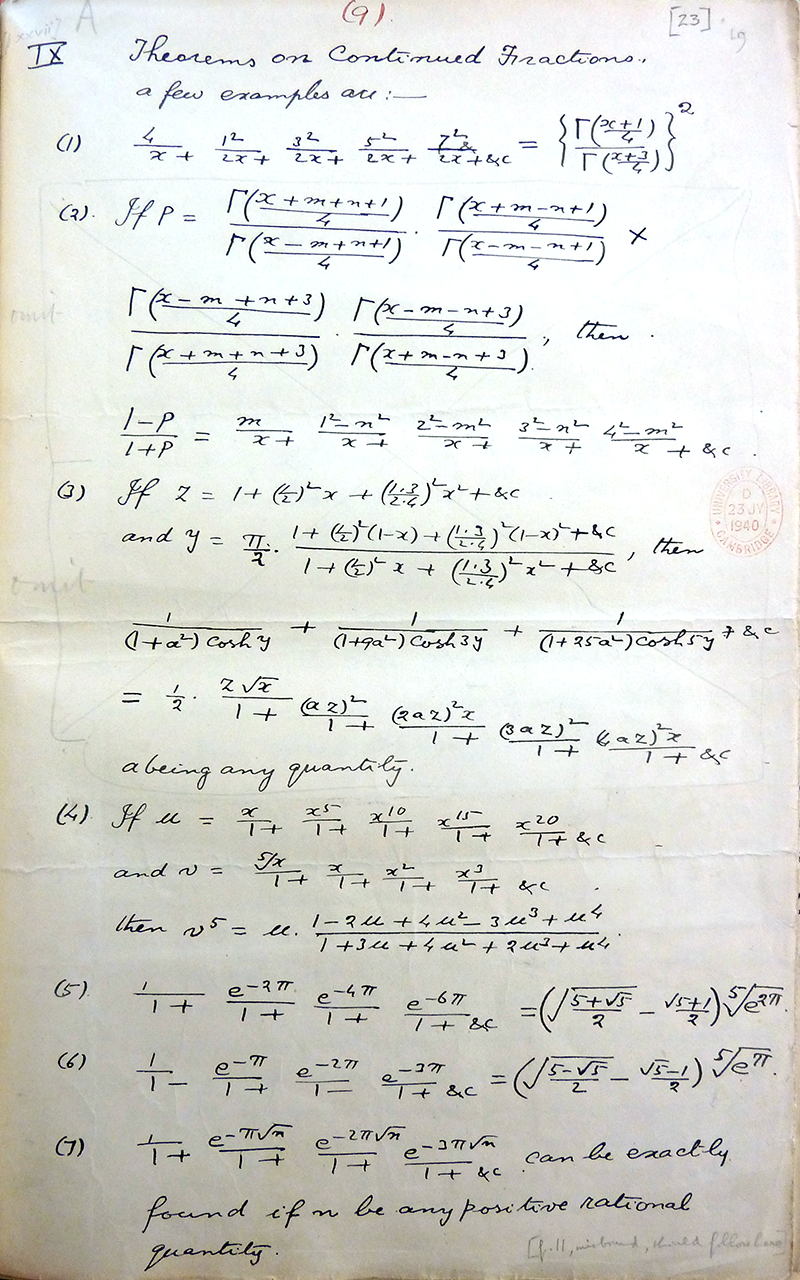 (9).
[23]
19
(xxvii) A
IX Theorems on Continued Fractions.
a few examples are:—
(1) 4/x+ 1²/2x+ 3²/2x+ 5²/2x+ 7²/2x+&c = {Γ((x+1)/4)/Γ((x+3)/4)}²
(2). If P = Γ((x+m+n+1)/4)/Γ((x-m+n+1)/4) · Γ((x+m-n+1)/4)/Γ((x-m-n+1)/4) ×
Γ((x-m+n+3)/4)/Γ((x+m+n+3)/4) · Γ((x-m-n+3)/4)/Γ((x+m-n+3)/4), then
omit
(1-P)/(1+P) = m/x+ (1²-n²)/x+ (2²-m²)/x+ (3²-n²)/x+ (4²-m²)/x+ &c.
(3) If z = 1+(½)²x+(1·3/2·4)²x²+&c
and y = π/2 · (1+(½)²(1-x)+(1·3/2·4)²(1-x)²+&c)/(1+(½)²x+(1·3/2·4)²x²+&c), then
UNIVERSITY LIBRARY
D
23 JY
1940
CAMBRIDGE
omit
1/((1+a²)cosh y) + 1/((1+9a²)cosh 3y) + 1/((1+25a²)cosh 5y) + &c
= ½ · z√x/1+ (az)²/1+ (2az)²x/1+ (3az)²/1+ (4az)²x/1+ &c
a being any quantity.
(4) If u = x/1+ x⁵/1+ x¹⁰/1+ x¹⁵/1+ x²⁰/1+ &c
and v = ⁵√x/1+ x/1+ x²/1+ x³/1+ &c
then v⁵ = u · (1-2u+4u²-3u³+u⁴)/(1+3u+4u²+2u³+u⁴).
(5). 1/1+ e^{-2π}/1+ e^{-4π}/1+ e^{-6π}/1+ &c = (√((5+√5)/2) - (√5+1)/2) ⁵√(e^{2π}).
(6) 1/1- e^{-π}/1+ e^{-2π}/1- e^{-3π}/1+ &c = (√((5-√5)/2) - (√5-1)/2) ⁵√(e^π).
(7) 1/1+ e^{-π√n}/1+ e^{-2π√n}/1+ e^{-3π√n}/1+ &c can be exactly
found if n be any positive rational
quantity.
[f. 11, misbound, should follow here]